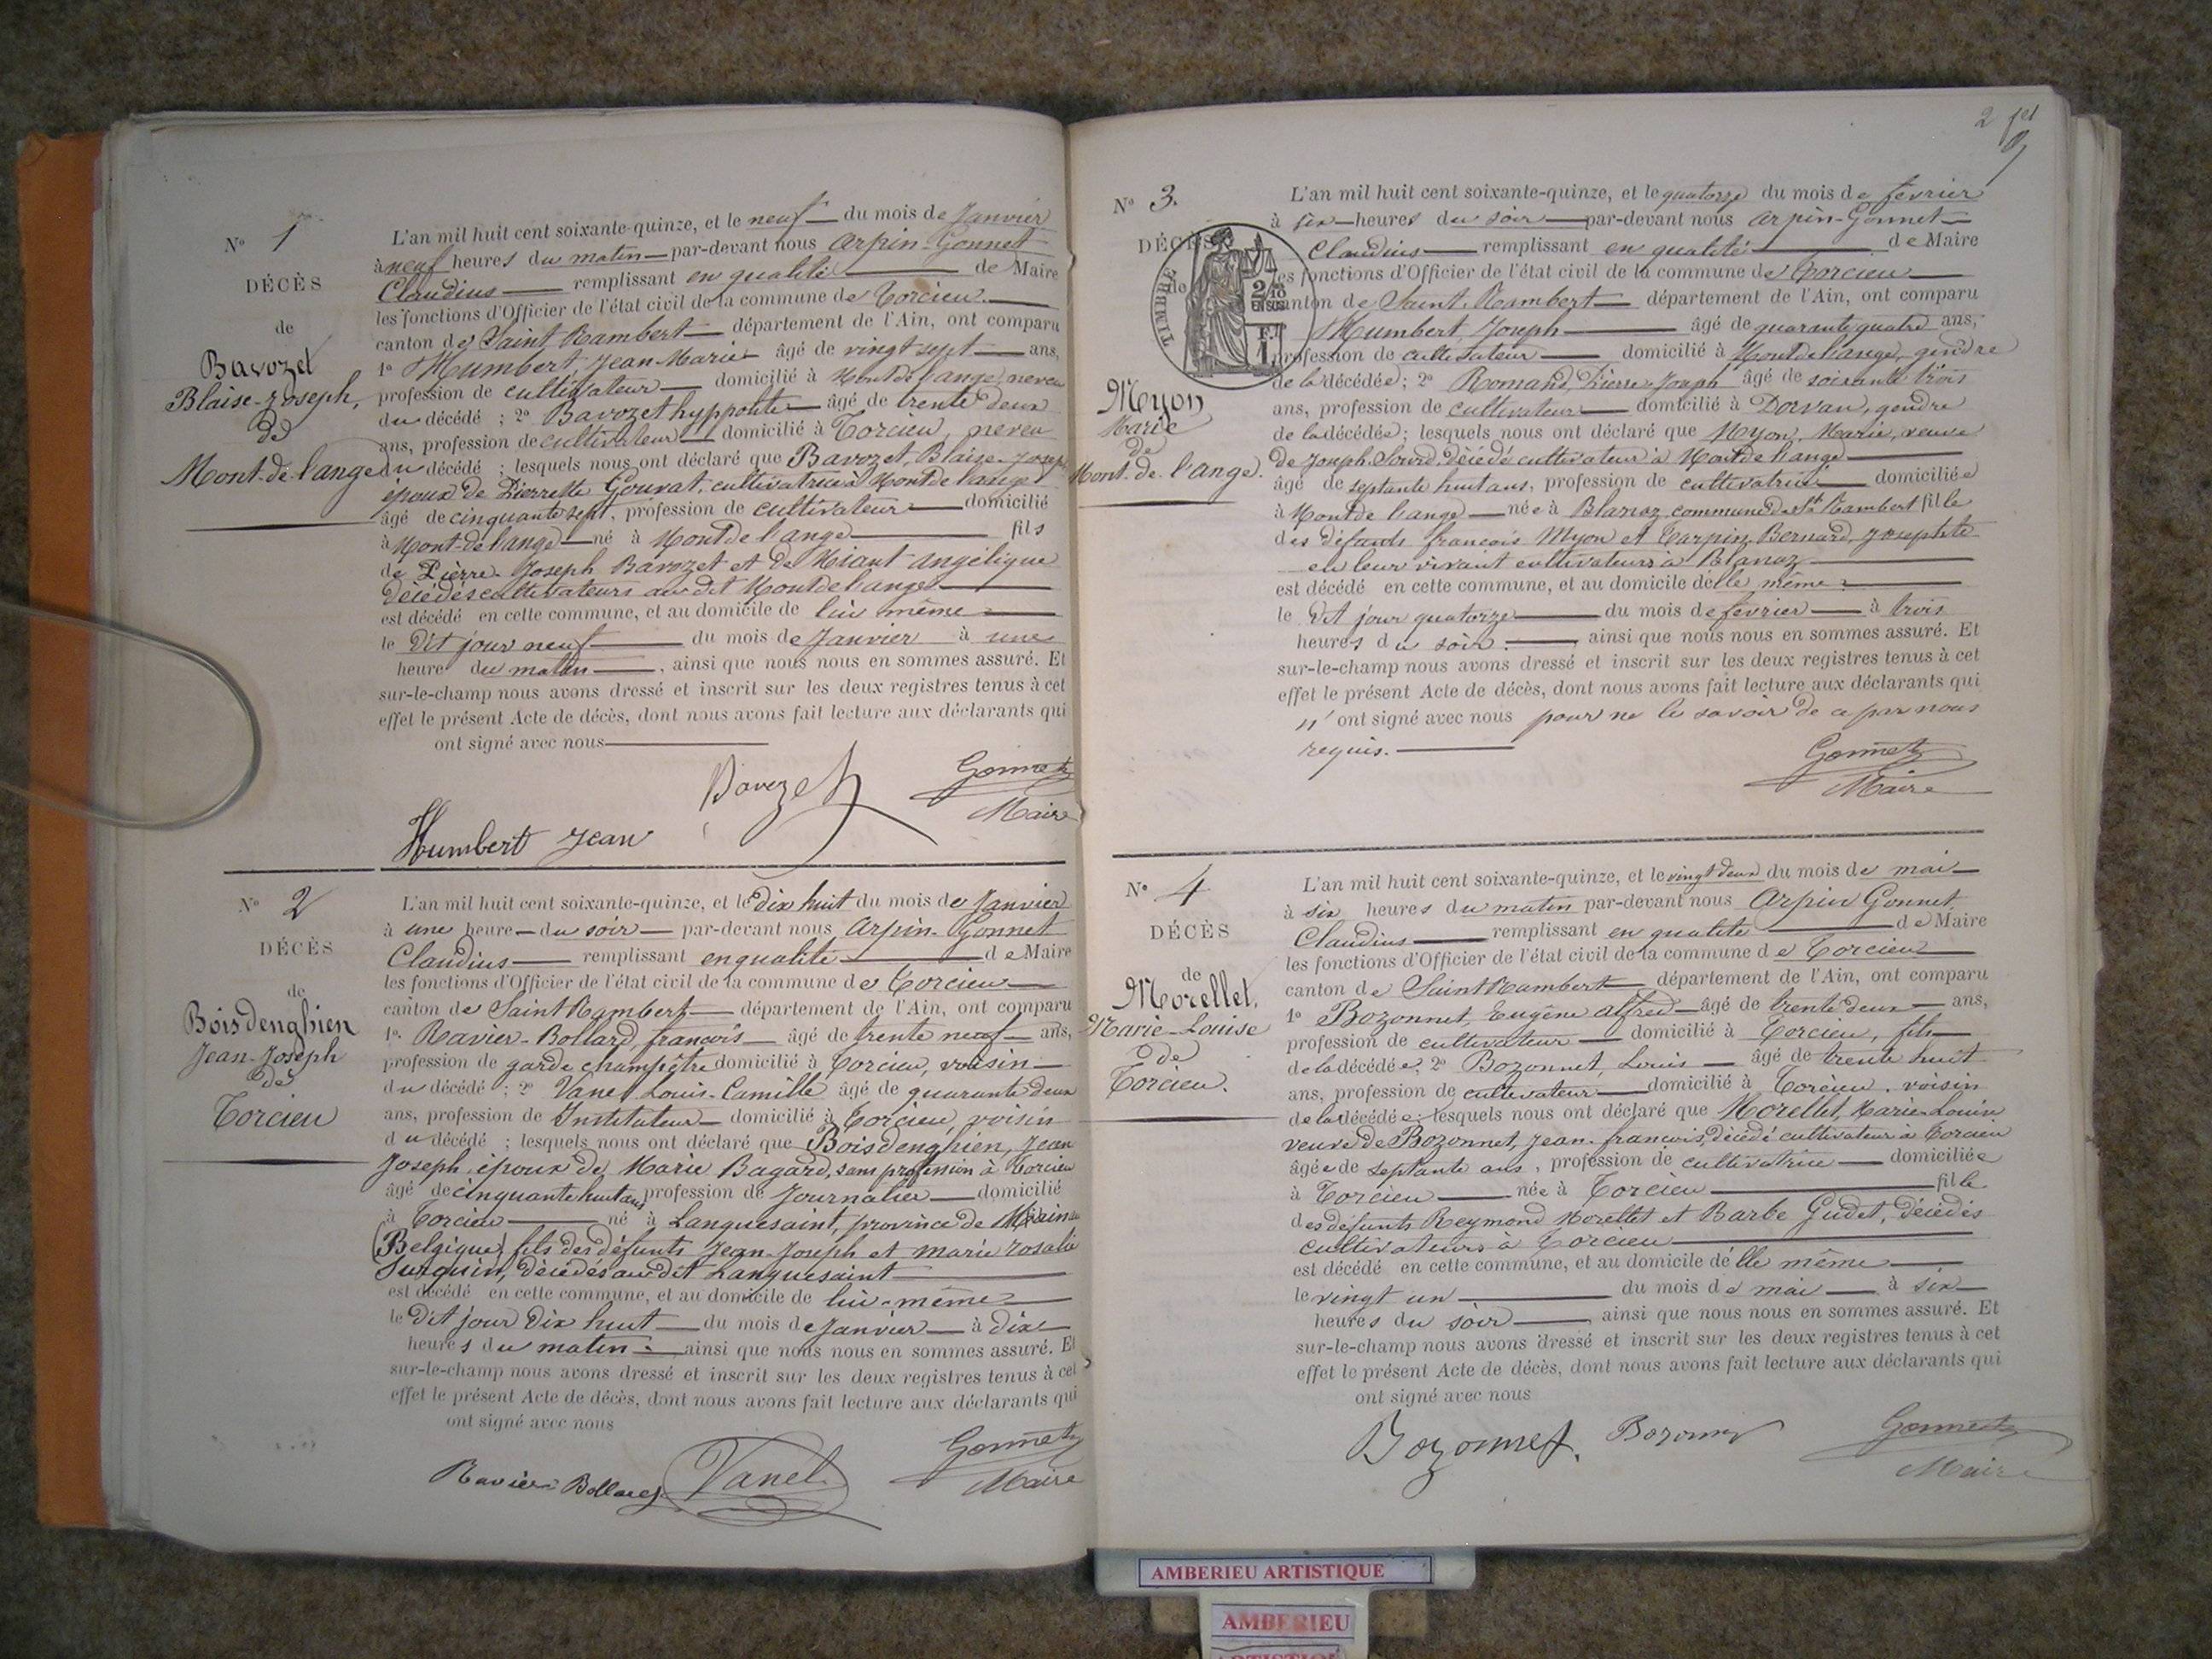 N° 1
DÉCÈS
de
Bavozet
Blaise-Joseph,
de
Mont-de-l'ange
L'an mil huit cent soixante-quinze, et le neuf du mois de Janvier
à neuf heures du matin par-devant nous Arpin-Gonnet
Claudius remplissant en qualité de Maire
les fonctions d'Officier de l'état civil de la commune de Torcieu.
canton de Saint Rambert département de l'Ain, ont comparu
1° Humbert, Jean-Marie âgé de vingt sept ans,
profession de cultivateur domicilié à Montdelange, neveu
du décédé ; 2° Bavozet hyppolite âgé de trente deux
ans, profession de cultivateur domicilié à Torcieu, neveu
du décédé ; lesquels nous ont déclaré que Bavozet, Blaise-Joseph
époux de Pierrette Gouvat, cultivatrice à Montdelange
âgé de cinquante sept, profession de cultivateur domicilié
à Mont-de-l'ange né à Montdelange fils
de Pierre-Joseph Bavozet et de Miant Angélique
décédés cultivateurs au dit Montdelange
est décédé en cette commune, et au domicile de lui même
le dit jour neuf du mois de Janvier à une
heure du matin, ainsi que nous nous en sommes assuré. Et
sur-le-champ nous avons dressé et inscrit sur les deux registres tenus à cet
effet le présent Acte de décès, dont nous avons fait lecture aux déclarants qui
ont signé avec nous
Bavozet Gonnet
Maire
Humbert Jean
N° 2
DÉCÈS
de
Boisdenghien
Jean-Joseph
de
Torcieu
L'an mil huit cent soixante-quinze, et le dix huit du mois de Janvier
à une heure du soir par-devant nous Arpin-Gonnet
Claudius remplissant en qualité de Maire
les fonctions d'Officier de l'état civil de la commune de Torcieu
canton de Saint Rambert département de l'Ain, ont comparu
1° Ravier-Bollard, françois âgé de trente neuf ans,
profession de garde champêtre domicilié à Torcieu, voisin
du décédé ; 2° Vanel Louis-Camille âgé de quarante deux
ans, profession de Instituteur domicilié à Torcieu, voisin
du décédé ; lesquels nous ont déclaré que Boisdenghien, Jean
Joseph, époux de Marie Bagard, sans profession à Torcieu
âgé de cinquante huit ans profession de Journalier domicilié
à Torcieu né à Languesaint, province de
(Belgique) fils des défunts Jean-Joseph et marie rosalie
Surquin, décédés au dit Languesaint
est décédé en cette commune, et au domicile de lui-même
le dit jour dix huit du mois de Janvier à dix
heures du matin ainsi que nous nous en sommes assuré. Et
sur-le-champ nous avons dressé et inscrit sur les deux registres tenus à cet
effet le présent Acte de décès, dont nous avons fait lecture aux déclarants qui
ont signé avec nous
Ravier-Bollard Vanel Gonnet
Maire
2
N° 3.
DÉCÈS
de
TIMBRE
Myon
Marie
de
Mont-de-l'ange.
L'an mil huit cent soixante-quinze, et le quatorze du mois de février
à six heures du soir par-devant nous Arpin-Gonnet
Claudius remplissant en qualité de Maire
les fonctions d'Officier de l'état civil de la commune de Torcieu
canton de Saint-Rambert département de l'Ain, ont comparu
1° Humbert, Joseph âgé de quarante quatre ans,
profession de cultivateur domicilié à Montdelange, gendre
de la décédée ; 2° Romand, Pierre-Joseph âgé de soixante trois
ans, profession de cultivateur domicilié à Dorvan, gendre
de la décédée ; lesquels nous ont déclaré que Myon, Marie, veuve
de Joseph Sourd, décédé cultivateur à Montdelange
âgé de septante huit ans, profession de cultivatrice domiciliée
à Montdelange née à Blanaz, commune de St Rambert fille
des défunts françois Myon et Tarpin-Bernard, Josephte
en leur vivant cultivateurs à Blanaz
est décédé en cette commune, et au domicile d'elle même
le dit jour quatorze du mois de février à trois
heures du soir. ainsi que nous nous en sommes assuré. Et
sur-le-champ nous avons dressé et inscrit sur les deux registres tenus à cet
effet le présent Acte de décès, dont nous avons fait lecture aux déclarants qui
n'ont signé avec nous pour ne le savoir de ce par nous
requis.
Gonnet
Maire
N° 4
DÉCÈS
de
Morellet,
Marie-Louise
de
Torcieu.
L'an mil huit cent soixante-quinze, et le vingt deux du mois de mai
à six heures du matin par-devant nous Arpin Gonnet
Claudius remplissant en qualité de Maire
les fonctions d'Officier de l'état civil de la commune de Torcieu
canton de Saint Rambert département de l'Ain, ont comparu
1° Bozonnet, Eugène alfred âgé de trente deux ans,
profession de cultivateur domicilié à Torcieu, fils
de la décédée, 2° Bozonnet, Louis âgé de trente huit
ans, profession de cultivateur domicilié à Torcieu. voisin
de la décédée ; lesquels nous ont déclaré que Morellet, Marie-Louise
veuve de Bozonnet, Jean-françois, décédé cultivateur à Torcieu
âgée de septante ans, profession de cultivatrice domiciliée
à Torcieu née à Torcieu fille
des défunts Reymond Morellet et Barbe Gudet, décédés
cultivateurs à Torcieu
est décédé en cette commune, et au domicile d'elle même
le vingt un du mois de mai à six
heures du soir ainsi que nous nous en sommes assuré. Et
sur-le-champ nous avons dressé et inscrit sur les deux registres tenus à cet
effet le présent Acte de décès, dont nous avons fait lecture aux déclarants qui
ont signé avec nous
Bozonnet. Bozonnet Gonnet
Maire
AMBERIEU ARTISTIQUE
AMBERIEU
ARTISTIQUE